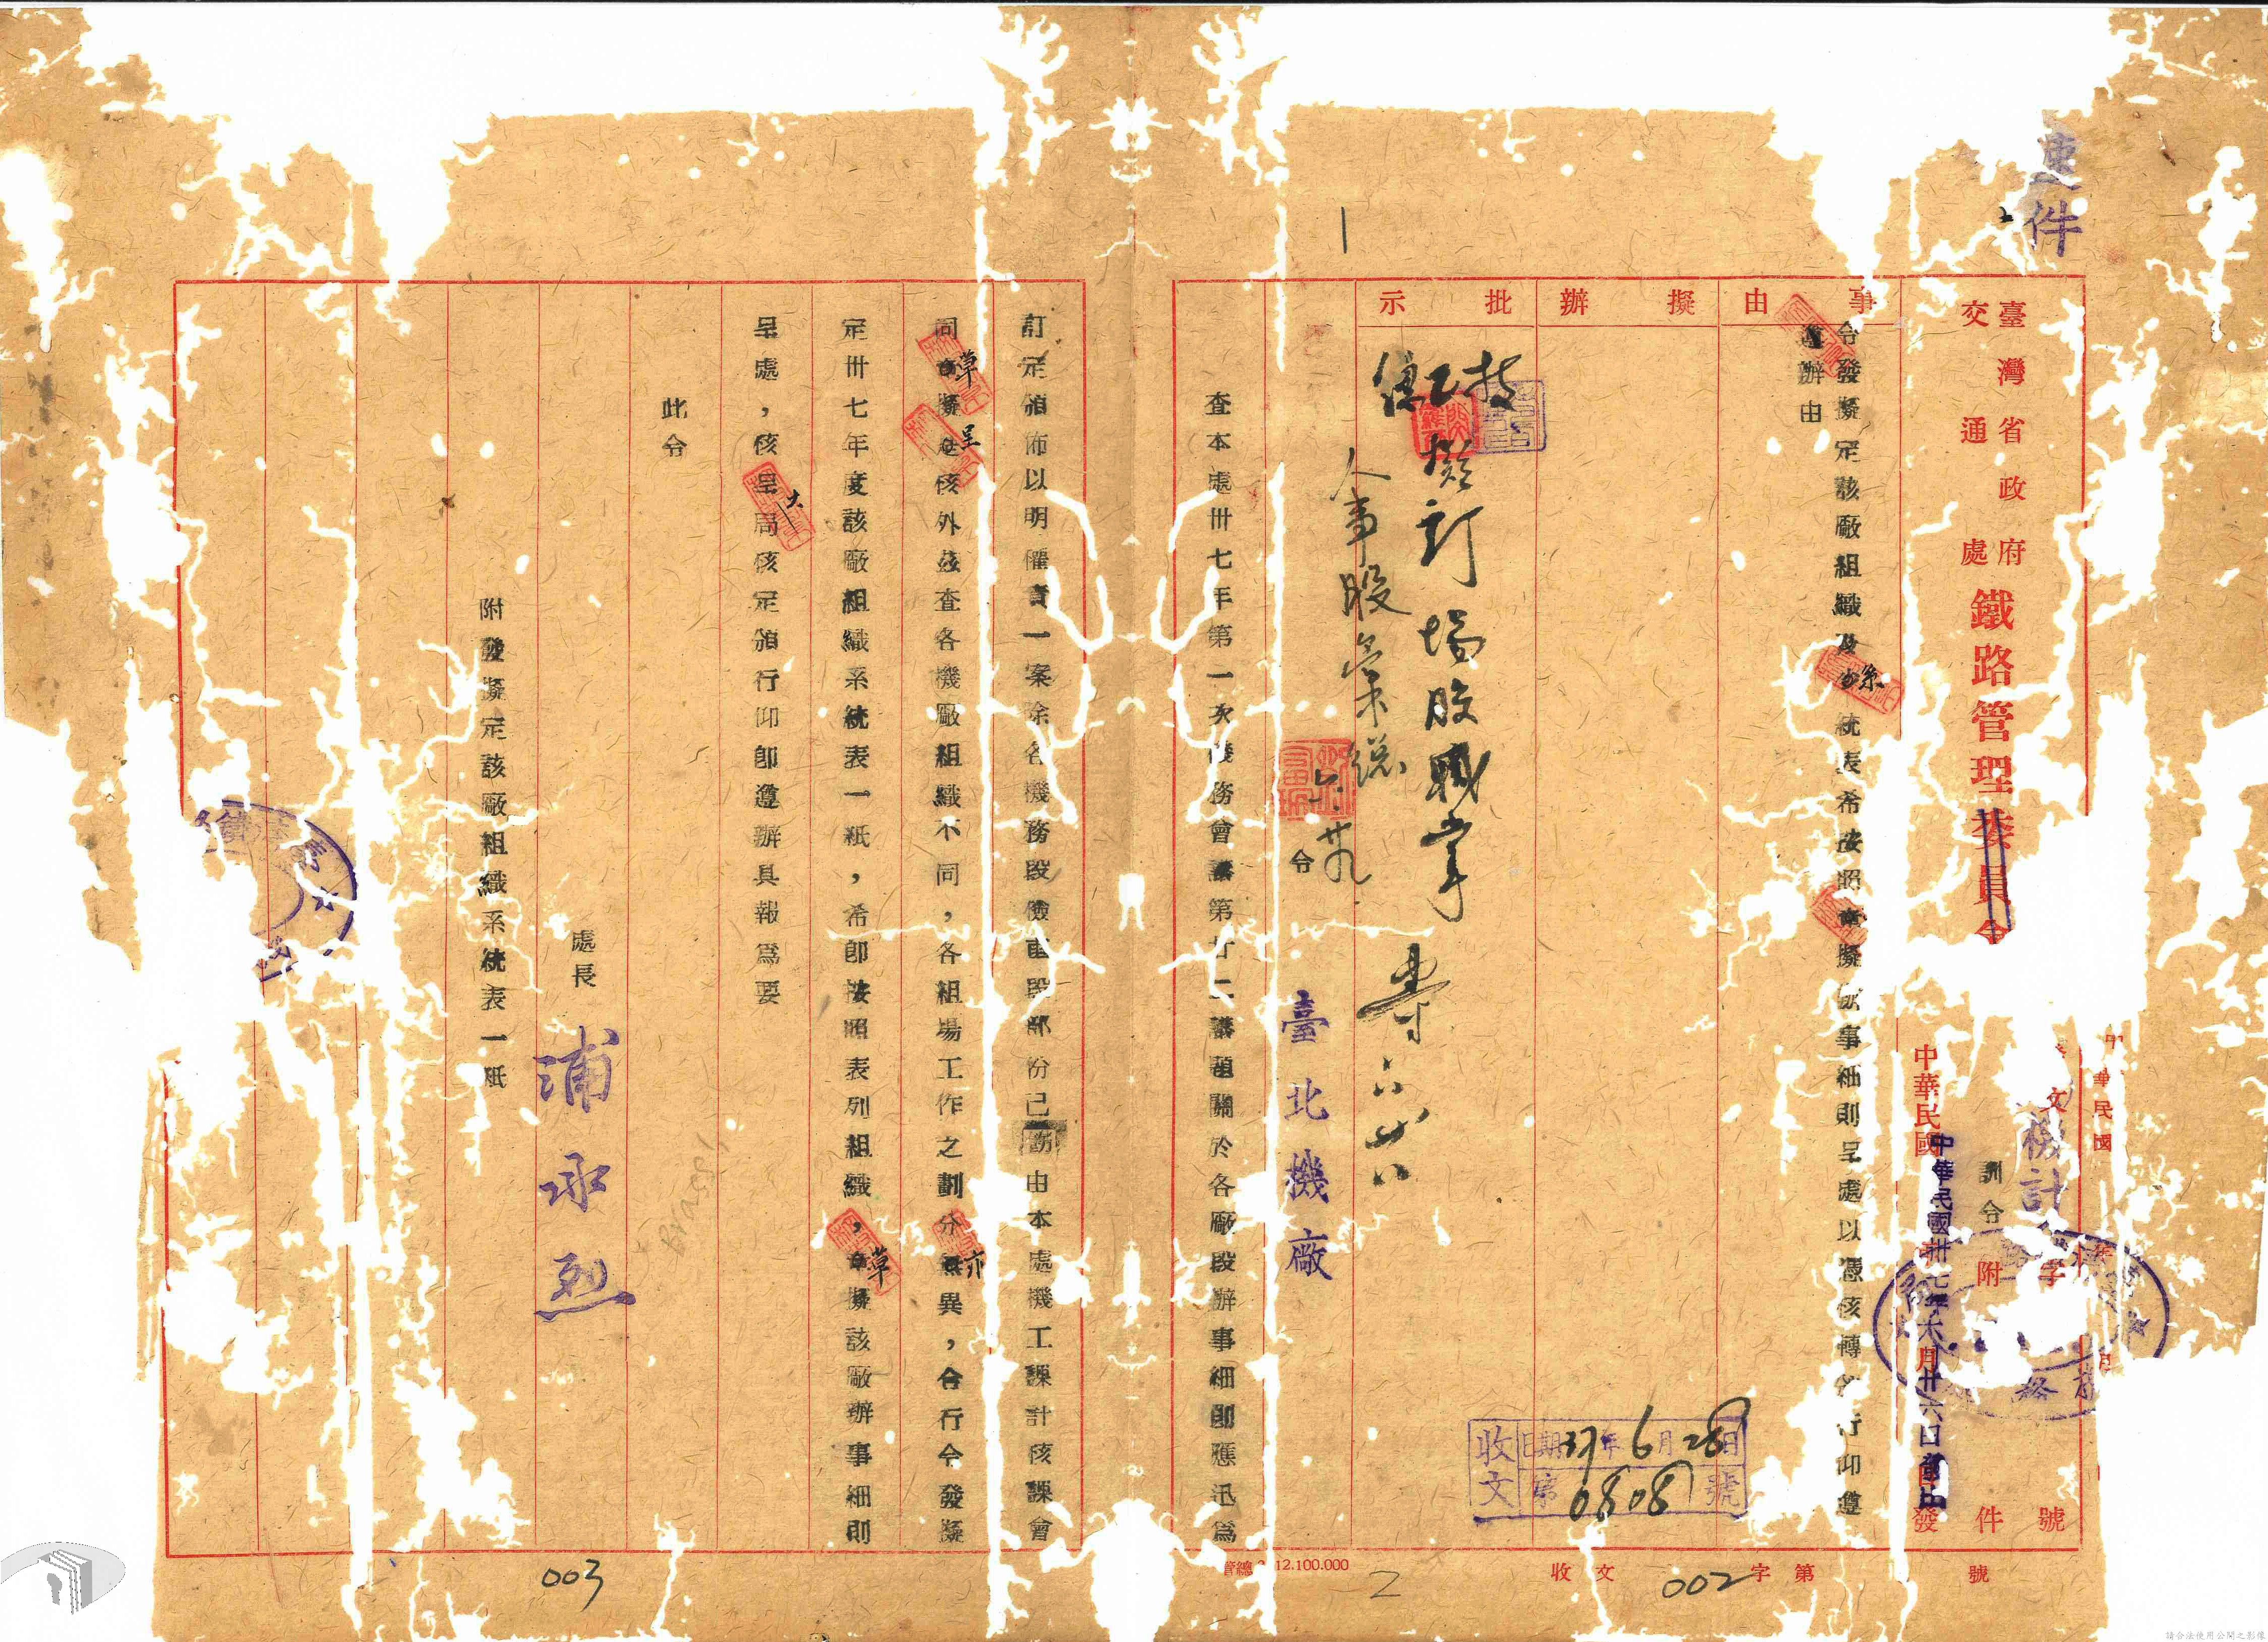 速件
臺灣省政府
交通處
鐵路管理委員會
訓令
機計
文 字 號
附 件
中華民國
中華民國卅七年六月廿六日發出
發
事由
令發擬定該廠組織及系統表希按照章擬辦事細則呈處以憑核轉 行仰遵
遵辦由
擬辦
批示
技
擬訂場股職掌
人事股彙總
六.廿九
六 廿八
令
臺北機廠
收文
日期37年6月28日
第0808號
查本處卅七年第一次機務會議第廿二議題關於各廠段辦事細則應迅為
訂定頒佈以明權責一案除各機務段檢車段部份已飭由本處機工課計核課會
同草擬呈核外茲查各機廠組織不同,各組場工作之劃分亦異,合行令發擬
定卅七年度該廠組織系統表一紙,希即按照表列組織,草擬該廠辦事細則
呈處,核大局核定頒行仰即遵辦具報為要
此令
處長 浦承烈
附發擬定該廠組織系統表一紙
收文 字第 號
12.100.000
002
2
003
請合法使用公開之影像